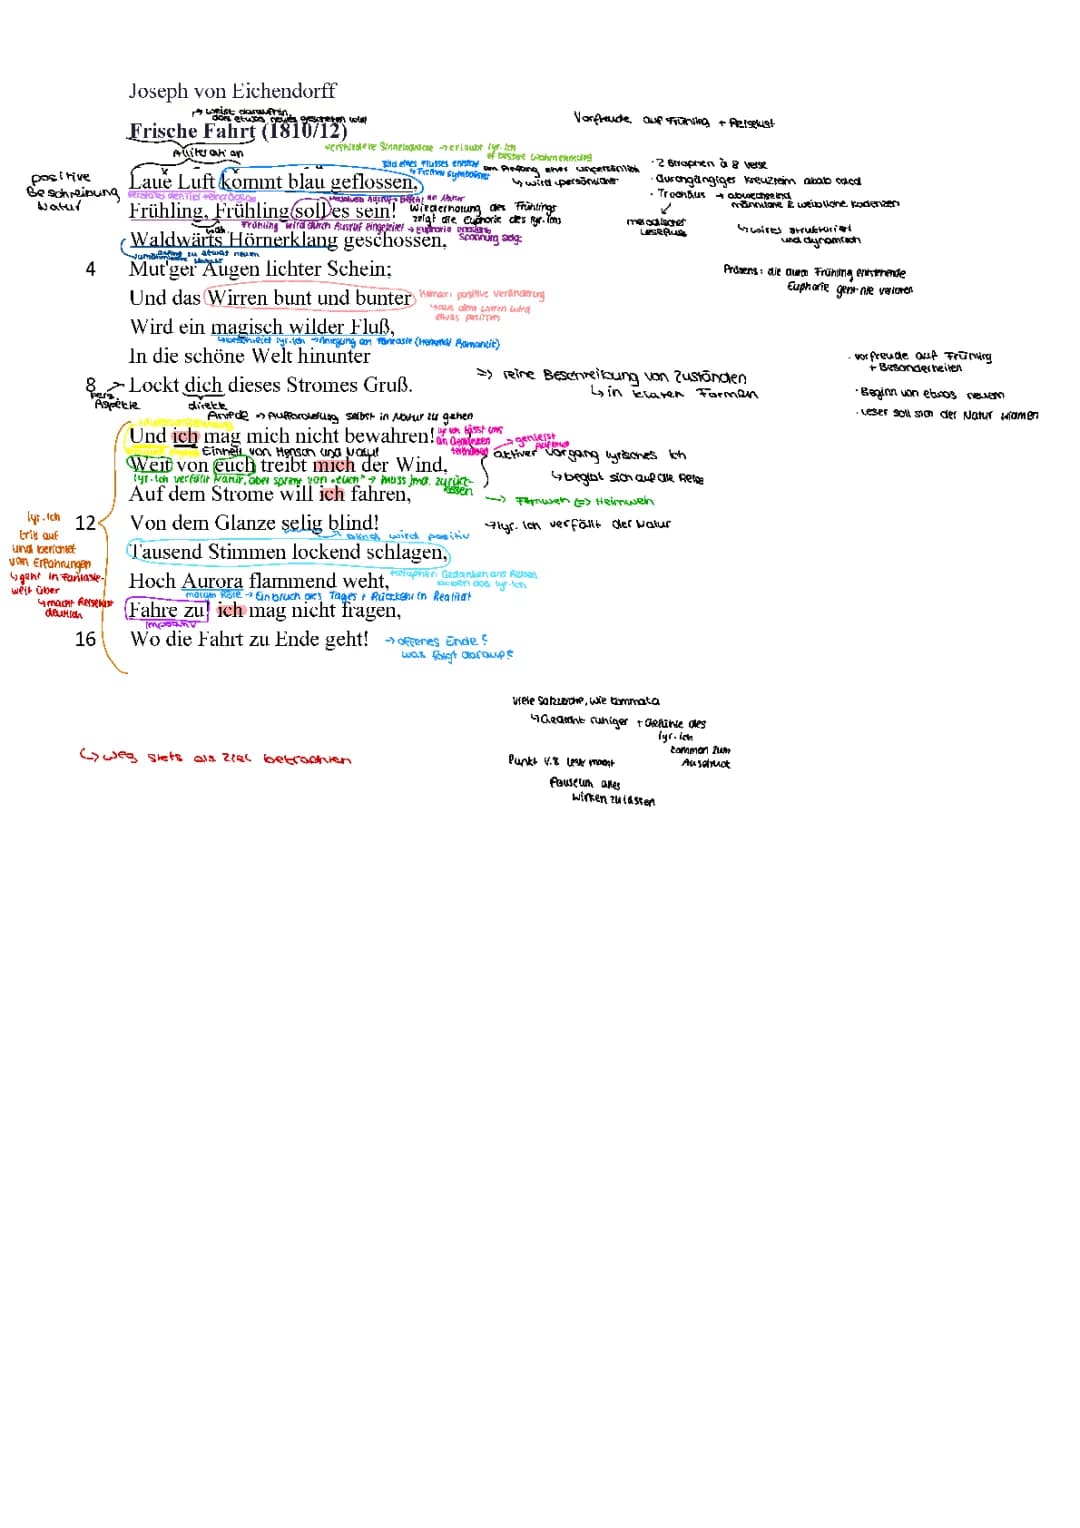 Joseph von Eichendorff
↱ weist daraufhin,
dass etwas neues geschehen wird
Vorfreude auf Frühling + Reiselust
Frische Fahrt (1810/12)
Alliteration
verschiedene Sinnesorgane → erlaubt lyr. ich
bessere Wahrnehmung
Bild eines Flusses entsteht
am Anfang eher unpersönlich
↳ wird persönlicher
· 2 Strophen à 8 Verse
· durchgängiges Kreuzreim abab cdcd
· Trochäus → abwechselnd
männliche & weibliche Kadenzen
melodischer
Lesefluss
↳ wirkt strukturiert
und dynamisch
positive
Beschreibung
Natur
Laue Luft kommt blau geflossen,
Frühling, Frühling soll es sein!
Wiederholung des Frühlings
zeigt die Euphorie des lyr. Ichs
Frühling wird durch Ausruf eingeleitet → Euphorie
Spannung steigt
Waldwärts Hörnerklang geschossen,
Anfang zu etwas neuem
4 Mut'ger Augen lichter Schein;
Präsens: die durch Frühling entstehende
Euphorie geht nie verloren
Und das Wirren bunt und bunter
positive Veränderung
aus dem Wirren wird
etwas positives
Wird ein magisch wilder Fluß,
lyr. ich → Anregung an Fantasie (Merkmal Romantik)
In die schöne Welt hinunter
· Vorfreude auf Frühling
+ Besonderheiten
· Beginn von etwas neuem
· Leser soll sich der Natur widmen
⇒ reine Beschreibung von Zuständen
↳ in klaren Formen
8 Lockt dich dieses Stromes Gruß.
pers.
Aspekte
direkte
Anrede → Aufforderung selbst in Natur zu gehen
Und ich mag mich nicht bewahren!
lyr. ich lässt uns
an Gedanken
teilhaben
→ genießt
Einheit von Mensch und Natur
aktiver Vorgang lyrisches Ich
↳ begibt sich auf die Reise
Weit von euch treibt mich der Wind,
lyr. ich verfällt Natur, aber spricht von "euch" → muss jmd. zurück-
lassen
Auf dem Strome will ich fahren,
→ Fernweh ⇔ Heimweh
lyr. ich
tritt auf
und berichtet
von Erfahrungen
↳ geht in Fantasie-
welt über
↳ macht Reiselust
deutlich
12 Von dem Glanze selig blind!
→ lyr. ich verfällt der Natur
blind wird positiv
Tausend Stimmen lockend schlagen,
Metapher: Gedanken ans Reisen
locken das lyr. Ich
Hoch Aurora flammend weht,
→ Einbruch des Tages + Rückkehr in Realität
Fahre zu! ich mag nicht fragen,
Imperativ
16 Wo die Fahrt zu Ende geht!
→ offenes Ende?
was folgt darauf?
viele Satzzeichen, wie Kommata
↳ Gedicht ruhiger + Gefühle des
lyr. ich
kommen zum
Ausdruck
↳ Weg stets als Ziel betrachten
Punkt V.8 Leser macht
Pause um alles
wirken zu lassen